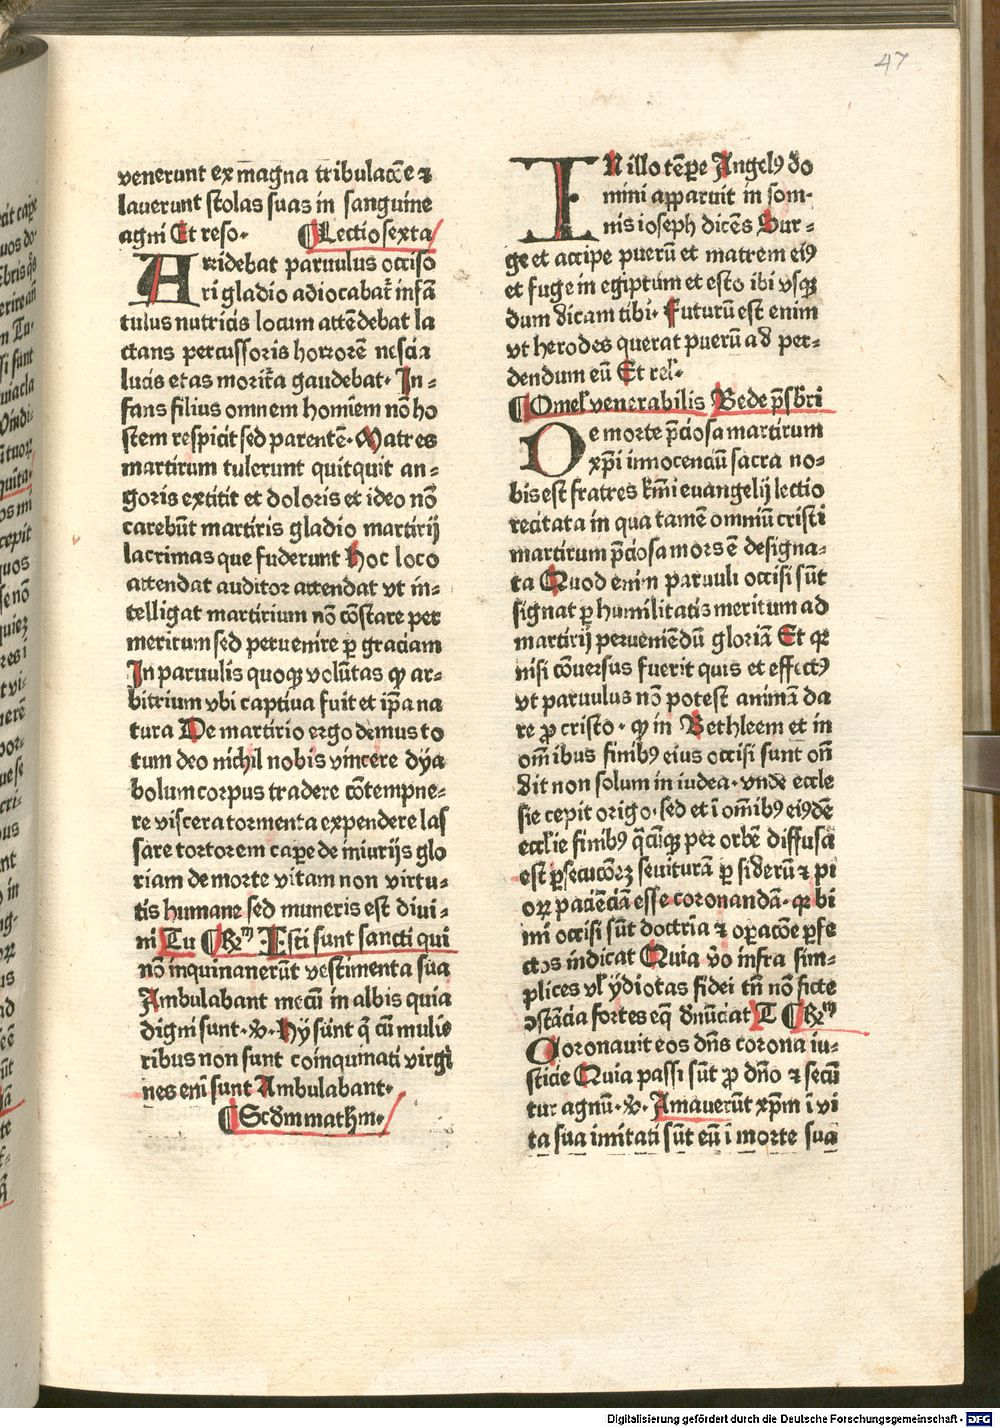 47
venerunt ex magna tribulacōe ⁊
lauerunt stolas suas in sanguine
agni Et reso. ¶Lectio sexta
Arridebat paruulus occiso
ri gladio adiocabat̄ infā
tulus nutricis locum attēdebat la
ctans percussoris horrorē nescia
lucis etas morit̄a gaudebat. In=
fans filius omnem homiem nō ho
stem respicit sed parentē. Matres
martirum tulerunt quitquit an=
goris extitit et doloris et ideo nō
carebūt martiris gladio martirij
lacrimas que fuderunt Hoc loco
attendat auditor attendat vt in=
telligat martirium nō cōstare per
meritum sed peruenire ꝑ graciam
In paruulis quoqꝫ volūtas qͥ ar=
bitrium vbi captiua fuit et ip̄a na
tura De martirio ergo demus to
tum deo nichil nobis vincere dya
bolum corpus tradere cōtempne=
re viscera tormenta expendere las
sare tortorem cap̄e de iniurijs glo
riam de morte vitam non virtu=
tis humane sed muneris est diui=
ni Tu ¶Rm̄ Isti sunt sancti qui
nō inquinanerūt vestimenta sua
Ambulabant mecū in albis quia
digni sunt. ꝟ. Hy sūnt q̄ cū mulie
ribus non sunt coinquinati virgi
nes eni sunt Ambulabant.
¶Scdm mathm.
IN illo tēp̄e Angelꝰ do
mini apparuit in som=
nis ioseph dicēs Sur=
ge et accipe puerū et matrem eiꝰ
et fuge in egiptum et esto ibi vsqꝫ
dum dicam tibi. Futurū est enim
vt herodes querat puerū ad per=
dendum eū Et rel.
¶Omel̄ venerabilis Bede p̄sbri
De morte p̄ciosa martirum
xp̄i innocenciū sacra no=
bis est fratres km̄i euangelij lectio
recitata in qua tamē omniū cristi
martirum p̄ciosa mors ē designa=
ta Quod enin paruuli occisi sūt
signat ꝑ humilitatis meritum ad
martirij perueniēdū gloriā Et qꝛ
nisi cōuersus fuerit quis et effectꝰ
vt paruulus nō potest animā da
re ꝓ cristo. qͥ in Bethleem et in
om̄ibus finibꝰ eius occisi sunt on̄
dit non solum in iudea. vnde eccle
sie cepit origo. sed et ī om̄ibꝰ eiꝰdē
eccl̄ie finibꝰ q̄cūqꝫ per orbē diffusa
est ꝑsecucōꝝ seuiturā ꝑ siderū ⁊ pi
oꝝ paciēciā esse coronandā. qꝛ bi
mi occisi sūt doctria ⁊ oꝑacōe ꝑfe
ctos indicat Quia v̄o infra sim=
plices vl̄ ydiotas fidei tn̄ nō ficte
ꝯstācia fortes eqͥ dn̄ūciat T ¶Rm̄
Coronauit eos dn̄s corona iu=
sticie Quia passi sūt ꝓ dn̄o ⁊ secū
tur agnū. ꝟ. Amauerūt xp̄m ī vi
ta sua imitati sūt eū ī morte sua
Digitalisierung gefördert durch die Deutsche Forschungsgemeinschaft - DFG